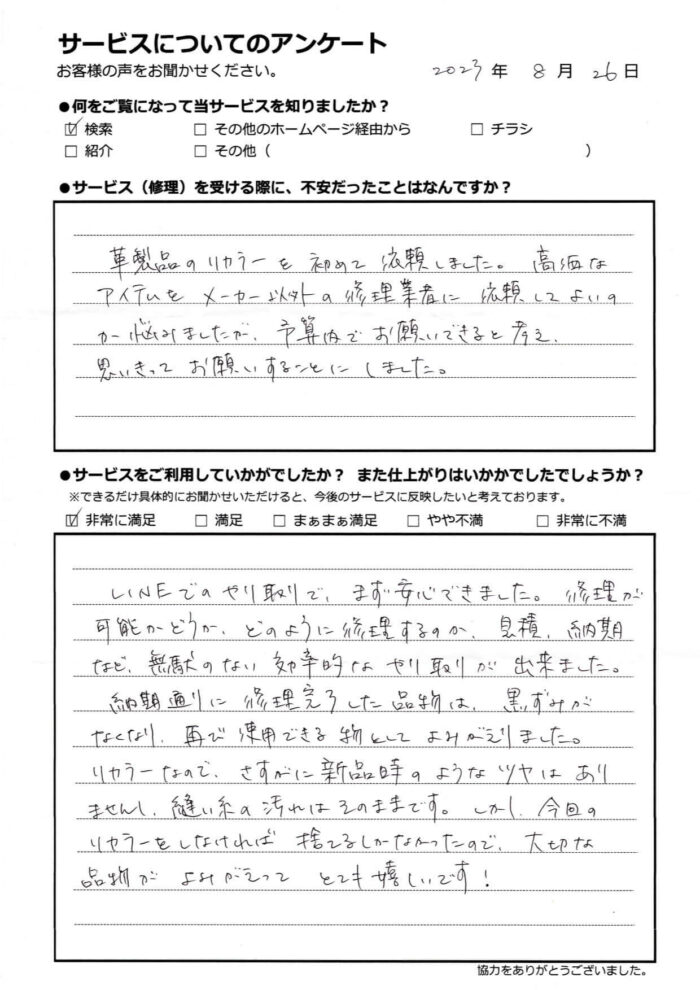 サービスについてのアンケート
お客様の声をお聞かせください。
2023年 8月 26日
●何をご覧になって当サービスを知りましたか?
☑ 検索 □ その他のホームページ経由から □ チラシ
□ 紹介 □ その他( )
●サービス(修理)を受ける際に、不安だったことはなんですか?
革製品のリカラーを初めて依頼しました。高価な
アイテムをメーカー以外の修理業者に依頼してよいの
か悩みましたが、予算内でお願いできると考え、
思いきってお願いすることにしました。
●サービスをご利用していかがでしたか? また仕上がりはいかかでしたでしょうか?
※できるだけ具体的にお聞かせいただけると、今後のサービスに反映したいと考えております。
☑ 非常に満足 □ 満足 □ まぁまぁ満足 □ やや不満 □ 非常に不満
LINEでのやり取りで、まず安心できました。修理が
可能かどうか、どのように修理するのか、見積、納期
など、無駄のない効率的なやり取りが出来ました。
納期通りに修理完了した品物は、黒ずみが
なくなり、再び使用できる物としてよみがえりました。
リカラーなので、さすがに新品時のようなツヤはあり
ませんし、縫い糸の汚れはそのままです。しかし、今回の
リカラーをしなければ捨てるしかなかったので、大切な
品物がよみがえってとても嬉しいです!
協力をありがとうございました。